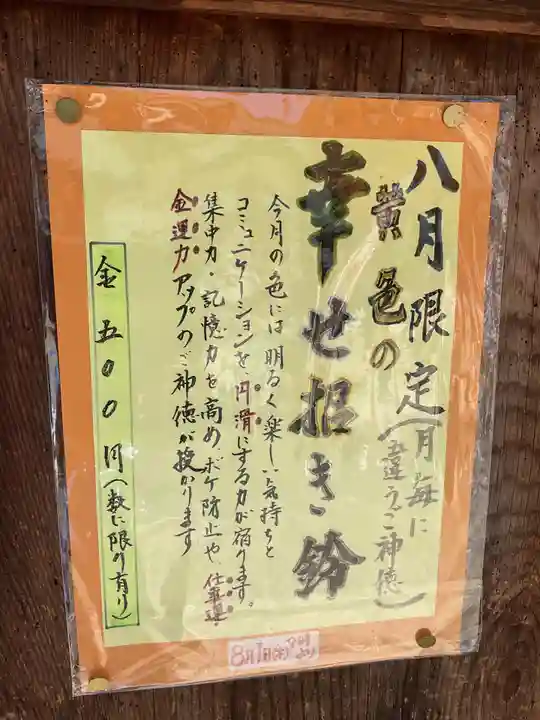 八月限定(月毎に
違うご神徳)
黄色の
幸せ招き鈴
今月の色には明るく楽しい気持ちと
コミュニケーションを、円滑にする力が宿ります。
集中力・記憶力を高め、ボケ防止や、仕事運・
金運力アップのご神徳が授かります
金五〇〇円(数に限り有り)
8月1日(木)